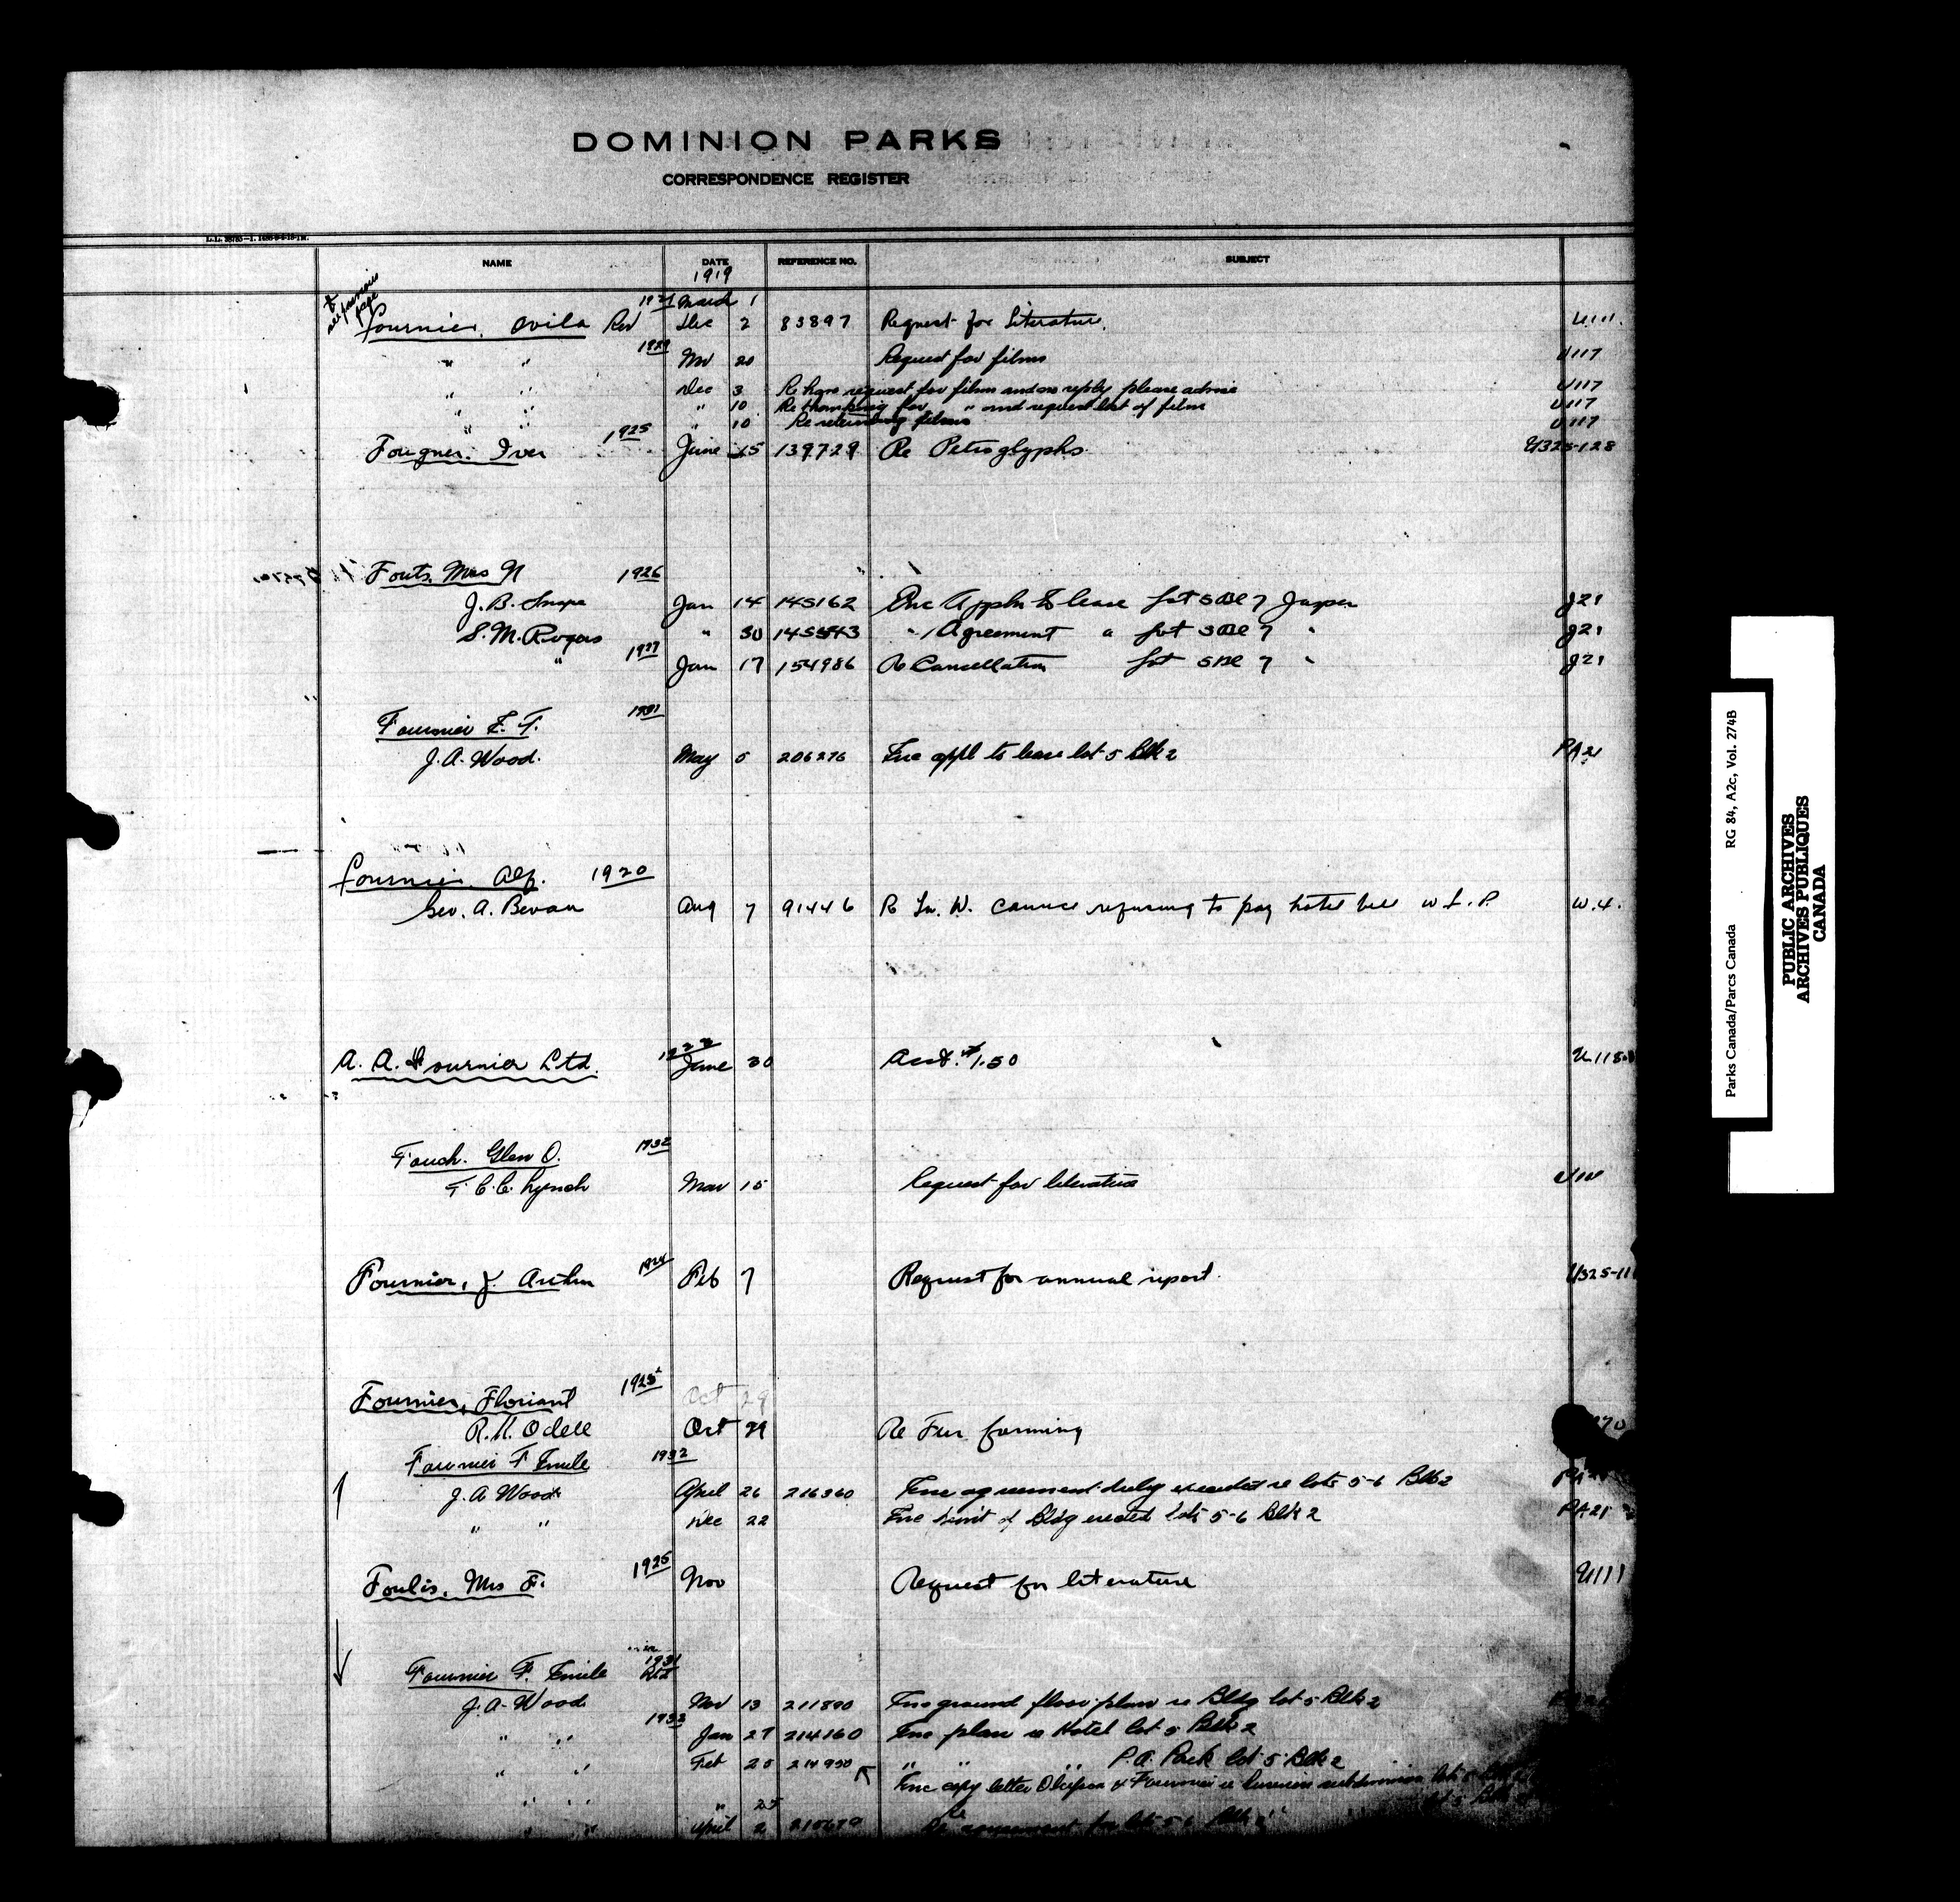 DOMINION PARKS
CORRESPONDENCE REGISTER
NAME DATE REFERENCE NO. SUBJECT
1919
see previous page
March 1
Fournier, Ovila Rev Dec 2 83897 Request for Literature. U111.
1929 Nov 20 Request for films U117
" " Dec 3 Re request for films and no reply please advise U117
" " " 10 Re thanking for " and request list of films U117
" " " 10 Re returning films U117
Fougner, Iver 1925 June 15 139729 Re Petroglyphs U325-128
Fouts, Mrs N 1926
J. B. Snape Jan 14 145162 Enc Appln to lease Lot 5 Bl 7 Jasper J21
S. M. Rogers " 30 145543 " Agreement " Lot 5 Bl 7 " J21
" 1927 Jan 17 154986 Re Cancellation Lot 5 Bl 7 " J21
Fournier F. F. 1931
J. A. Wood. May 5 206276 Enc appl to lease lot 5 Blk 2 PA21
Fournier Alf. 1920
Geo. A. Bevan Aug 7 91446 R refusing to pay hotel W.L.P. W.4.
A. A. Fournier Ltd. 1922 June 30 Acct. $1.50 U.118
Fouch. Glen O. 1932
F. C. C. Lynch Mar 15 Request for literature
Fournier, J. Arthur Feb 7 Request for annual report. U325-11
Fournier, Floriant 1925 Oct 29
R. K. Odell Oct 29 Re Fur farming
Fournier F Emile 1932
J. A Wood April 26 216360 Enc agreement duly executed re lots 5-6 Blk 2
" " Dec 22 Enc of Bldg erected lots 5-6 Blk 2 PA21
Foulis, Mrs F. 1925 Nov Request for literature U111
Fournier F. Emile 1931
J. A. Wood Nov 13 211800 Enc ground floor plan re Bldg lot 5 Blk 2
" " Jan 27 214160 Enc plan re Hotel lot 5 Blk 2
" " Feb 25 " " " P.A. Park lot 5 Blk 2
" " " 25 Enc copy letter & Fournier re subdivision
" " April 2 Re agreement for lots 5-6 Blk 2
Parks Canada/Parcs Canada RG 84, A2c, Vol. 274B
PUBLIC ARCHIVES
ARCHIVES PUBLIQUES
CANADA